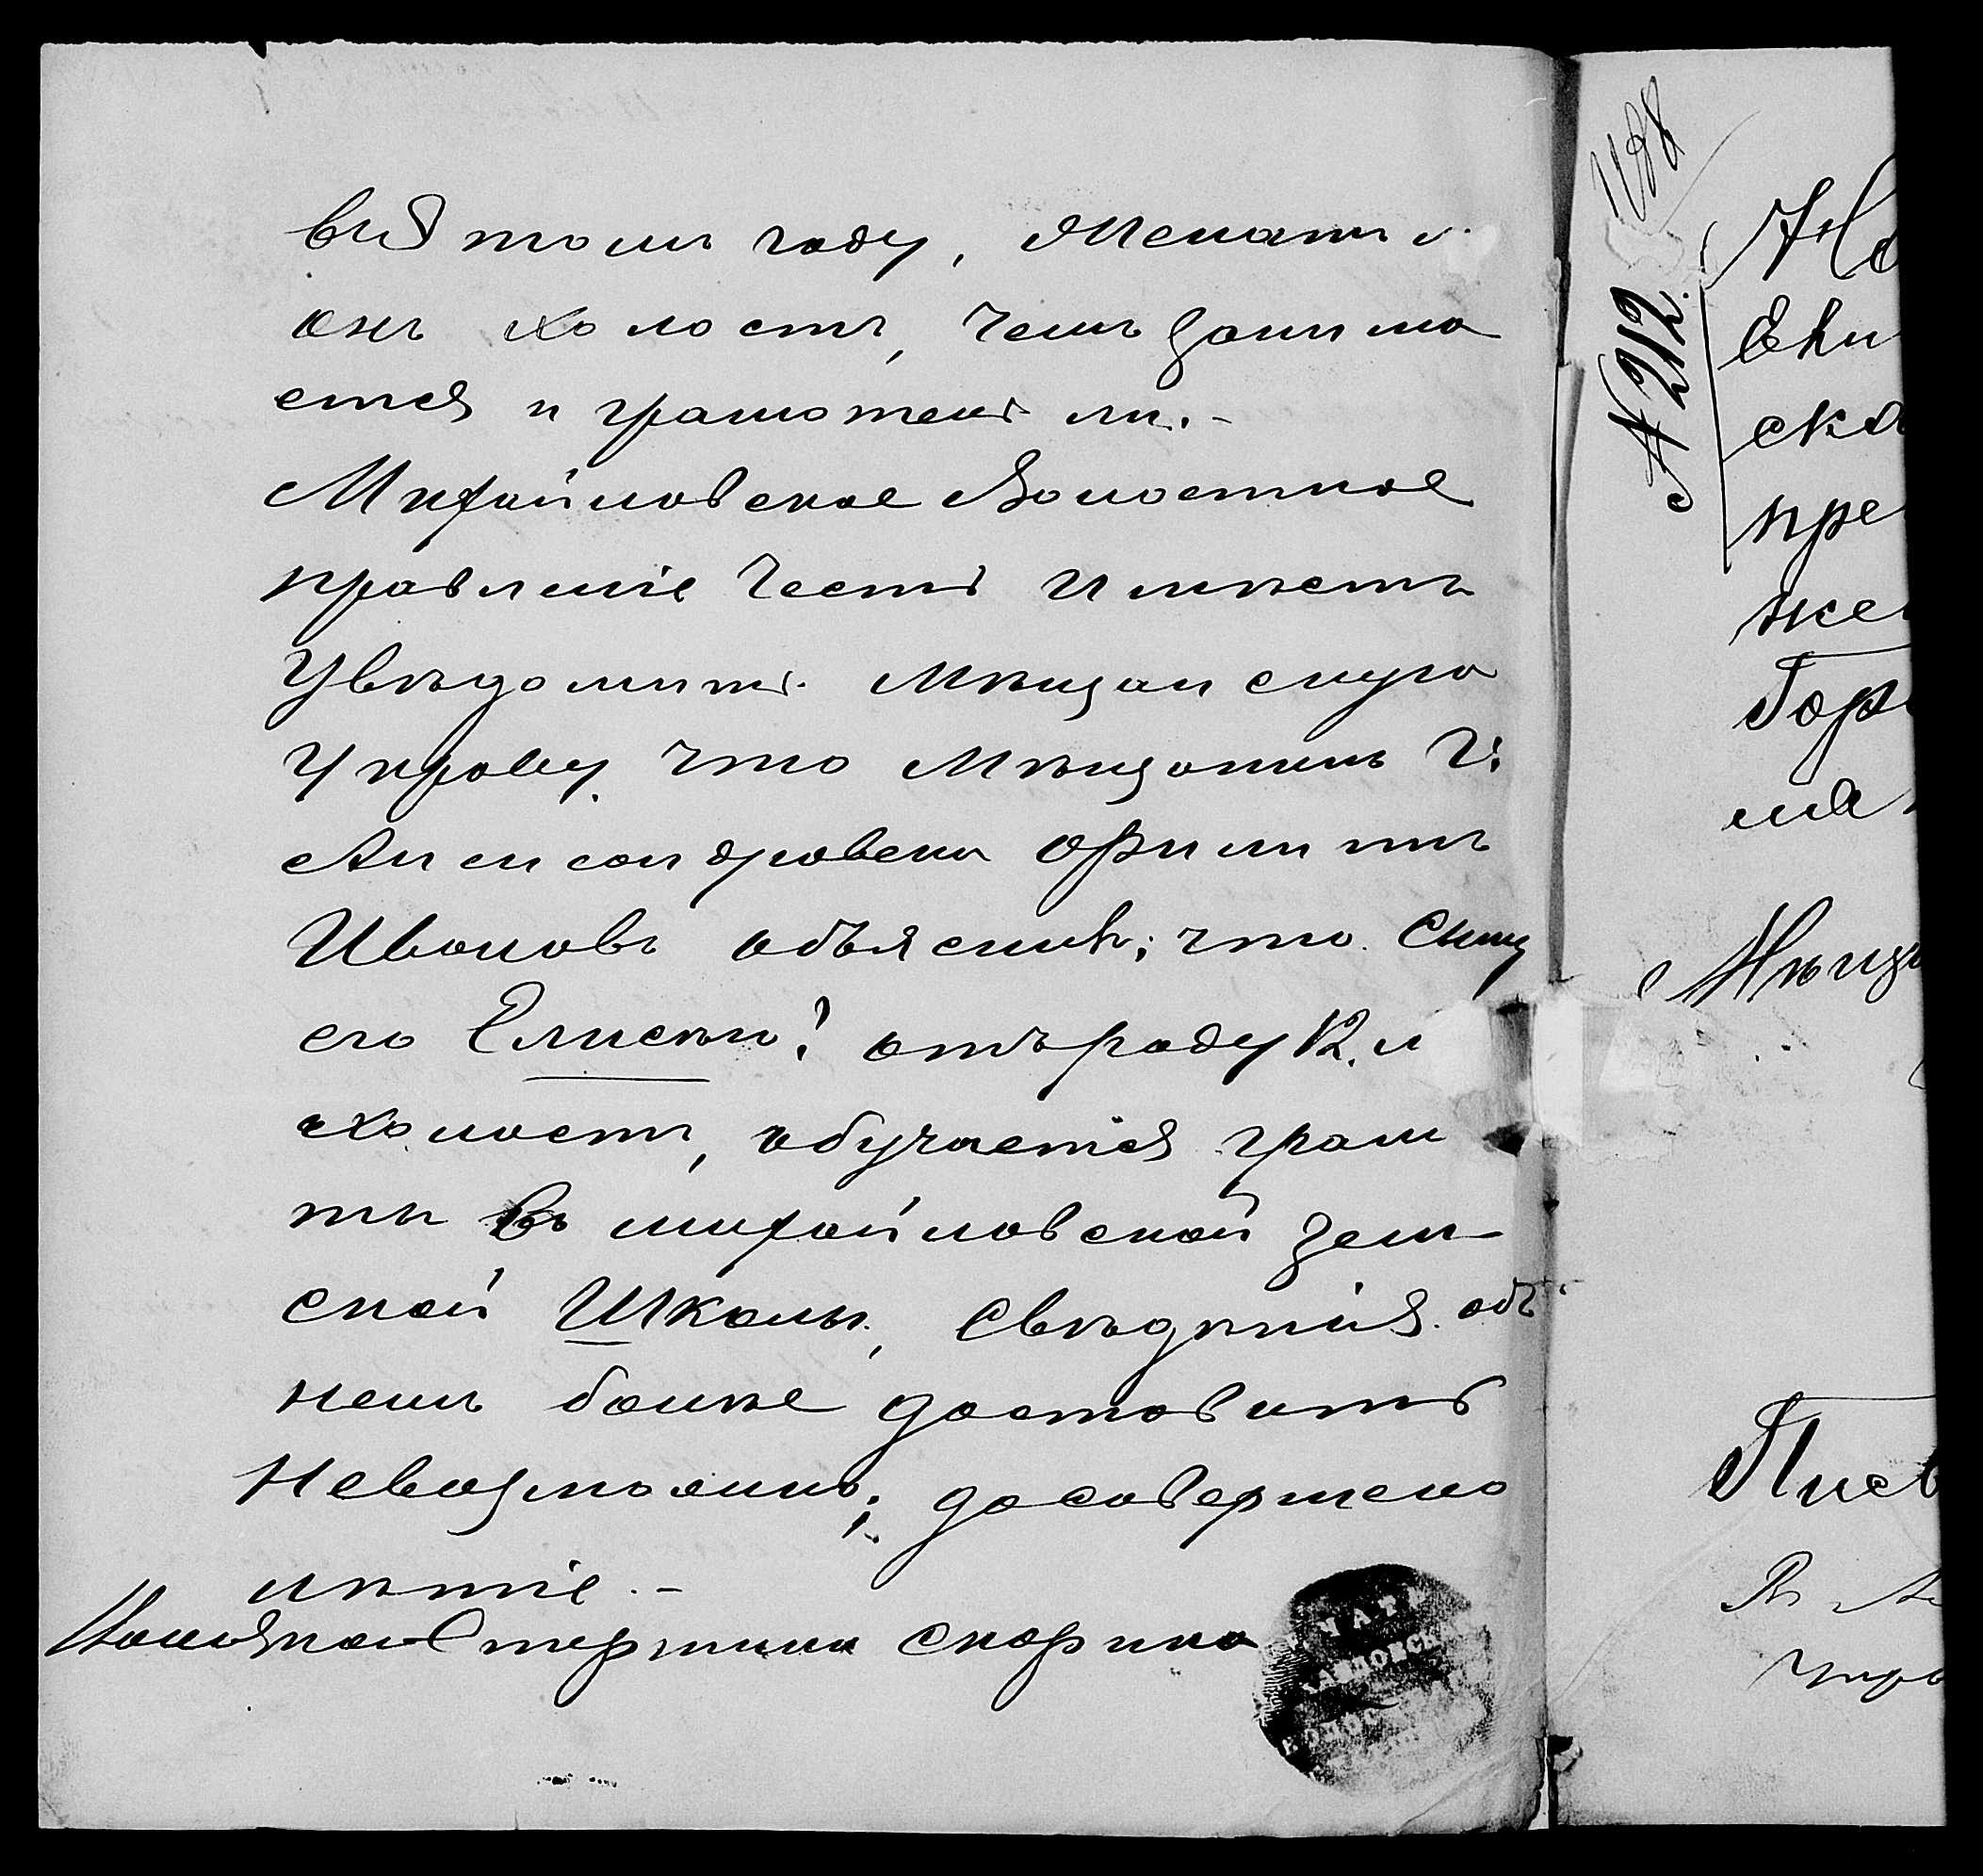 вія томъ году, Женатъ и
онъ холостъ, чемъ занима
ется и грамотенъ ли.-
Михайловское Волостное
правленіе Честь имѣетъ
Увѣдомить Мѣщанскую
Управу, что Мѣщанинъ Г.
Александровска Филиппъ
Ивановъ объяснилъ; что Сыну
его Елисѣю: отъ роду 12. л
холостъ, обучается грам
ты въ михайловской зем-
ской Школы, Свѣдѣнія объ
немъ болѣе доставить
Невозможно; досовершено
лѣтіе.-
Волостной Старшина Скорина
1188
№ 212.
Но
Ека
ска
пре
же
Гор
ма
Мѣща
Пис
Въ Ал
Упра